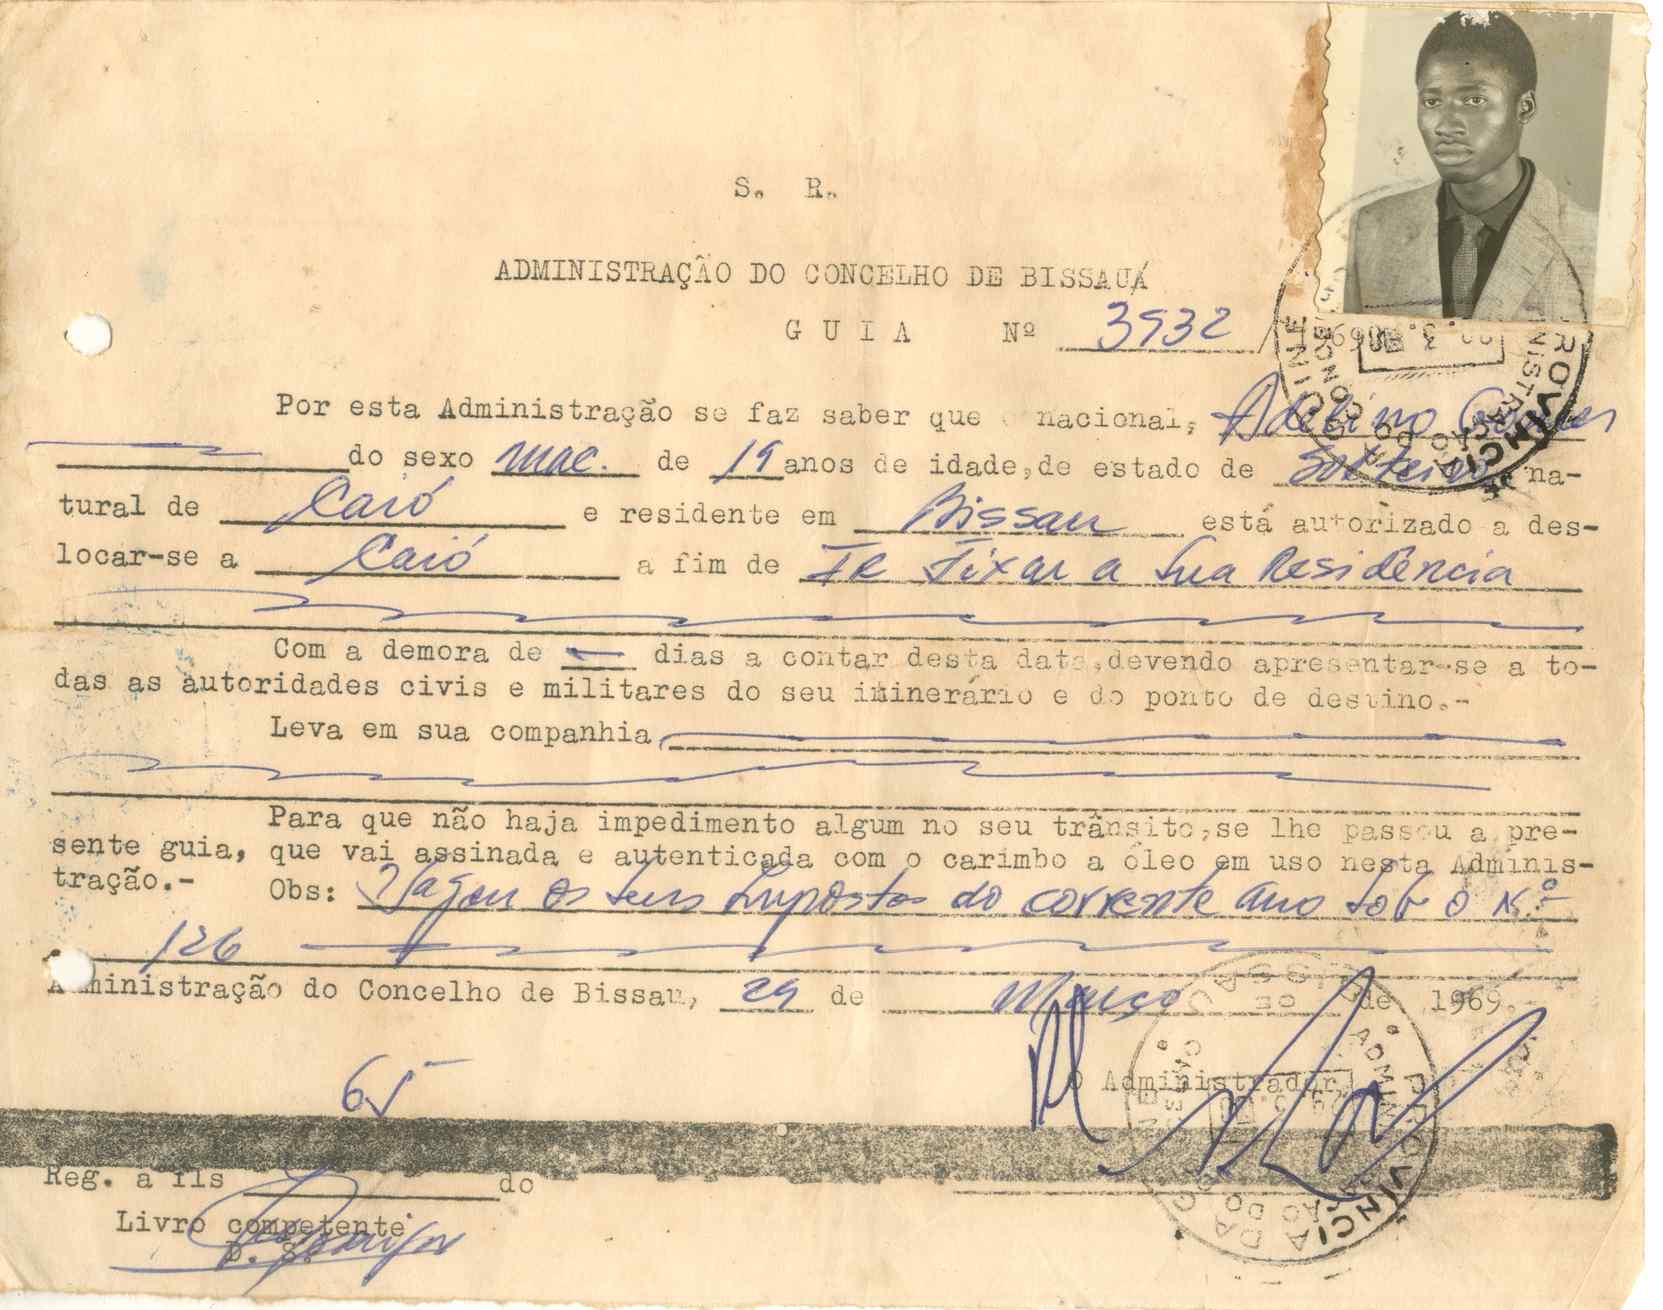 S. R.
ADMINISTRAÇÃO DO CONCELHO DE BISSAUÁ
GUIA Nº 3932 /
Por esta Administração se faz saber que o nacional, Adelino Gomes
do sexo Mac. de 19 anos de idade, de estado de Solteiro na-
tural de Caió e residente em Bissau está autorizado a des-
locar-se a Caió a fim de Ir Fixar a Sua Residência
Com a demora de — dias a contar desta data, devendo apresentar-se a to-
das as autoridades civis e militares do seu itinerário e do ponto de destino.-
Leva em sua companhia
Para que não haja impedimento algum no seu trânsito, se lhe passou a pre-
sente guia, que vai assinada e autenticada com o carimbo a óleo em uso nesta Adminis-
tração.-
Obs: Pagou os seus Impostos do corrente ano sob o N.º
126
Administração do Concelho de Bissau, 29 de Março de 1969.
65
O Administrador
Reg. a fls do
Livro competente
PROVINCIA DA
ADMINISTRAÇÃO DO CONCELHO